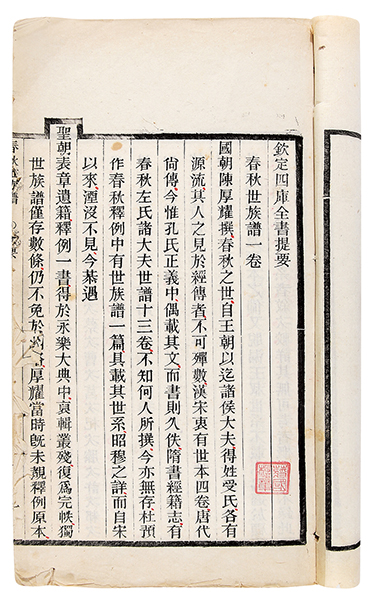 欽定四庫全書提要
春秋世族譜一卷
國朝陳厚耀撰春秋之世自王朝以迄諸侯大夫得姓受氏各有
源流其人之見於經傳者不可殫數漢宋衷有世本四卷唐代
尙傳今惟孔氏正義中偶載其文而書則久佚隋書經籍志有
春秋左氏諸大夫世譜十三卷不知何人所撰今亦無存杜預
作春秋釋例中有世族譜一篇具載其世系昭穆之詳而自宋
以來湮沒不見今恭遇
聖朝表章遺籍釋例一書得於永樂大典中裒輯叢殘復爲完帙獨
世族譜僅存數條仍不免於厚耀當時旣未覩釋例原本
春秋世族譜